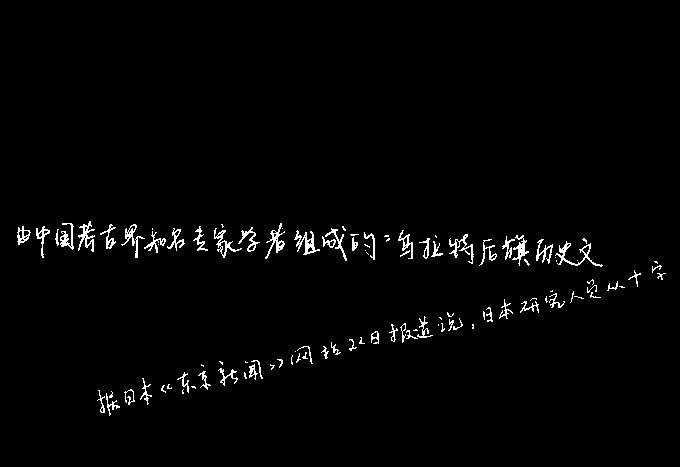 由中国考古界知名专家学者组成的“乌拉特后旗历史文
据日本《东京新闻》网站22日报道说，日本研究人员从十字